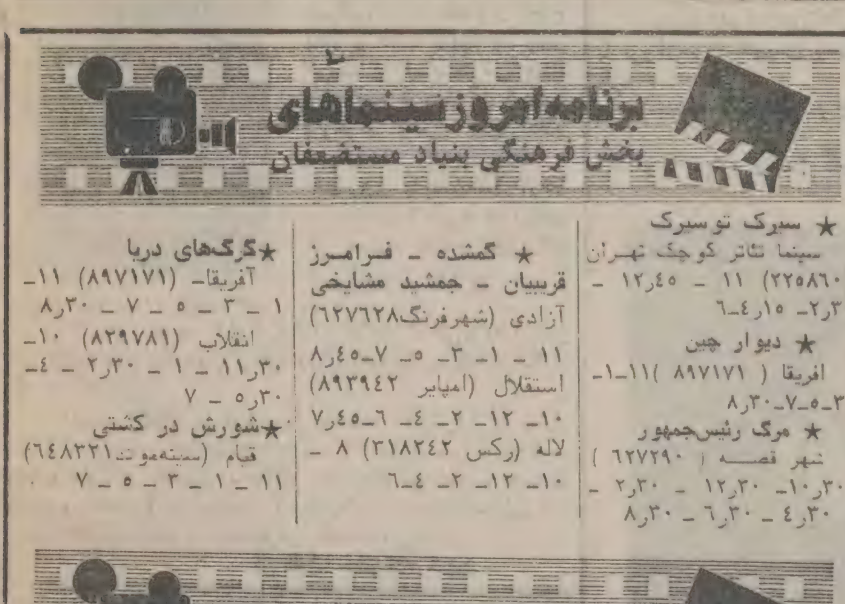 برنامه امروز سینماهای
بخش فرهنگی بنیاد مستضعفان
★ سیرک تو سیرک
سینما تئاتر کوچک تهران
(۲۲۵۸٦۰ ۱۱ – ۱۲٫٤۵ –
۲٫۳– ٤٫۱۵–٦
★ دیوار چین
افریقا ( ۸۹۷۱۷۱ )۱۱–۱–
۳–۵–۷–۸٫۳۰
★ مرگ رئیس‌جمهور
شهر قصه ( ٦۲۷۲۹۰ )
۱۰٫۳۰– ۱۲٫۳۰ – ۲٫۳۰ –
٤٫۳۰ – ٦٫۳۰ – ۸٫۳۰
★ گمشده – فرامرز
قریبیان – جمشید مشایخی
آزادی (شهرفرنگ٦۲۷٦۲۸)
۱۱ –۱– ۳– ۵– ۷–۸٫٤۵
استقلال (امپایر ۸۹۳۹٤۲)
۱۰– ۱۲– ۲– ٤– ٦–۷٫٤۵
لاله (رکس ۳۱۸۲٤۲) ۸ –
۱۰– ۱۲– ۲– ٤–٦
★گرگ‌های دریا
آفریقا– (۸۹۷۱۷۱) ۱۱–
۱ – ۳ – ۵ – ۷ – ۸٫۳۰
انقلاب (۸۲۹۷۸۱) ۱۰–
۱۱٫۳۰ – ۱ – ۲٫۳۰ – ٤–
۵٫۳۰ – ۷
★شورش در کشتی
قیام (سینه‌موند٦٤۸۳۲۱)
۱۱ – ۱ – ۳ – ۵ – ۷